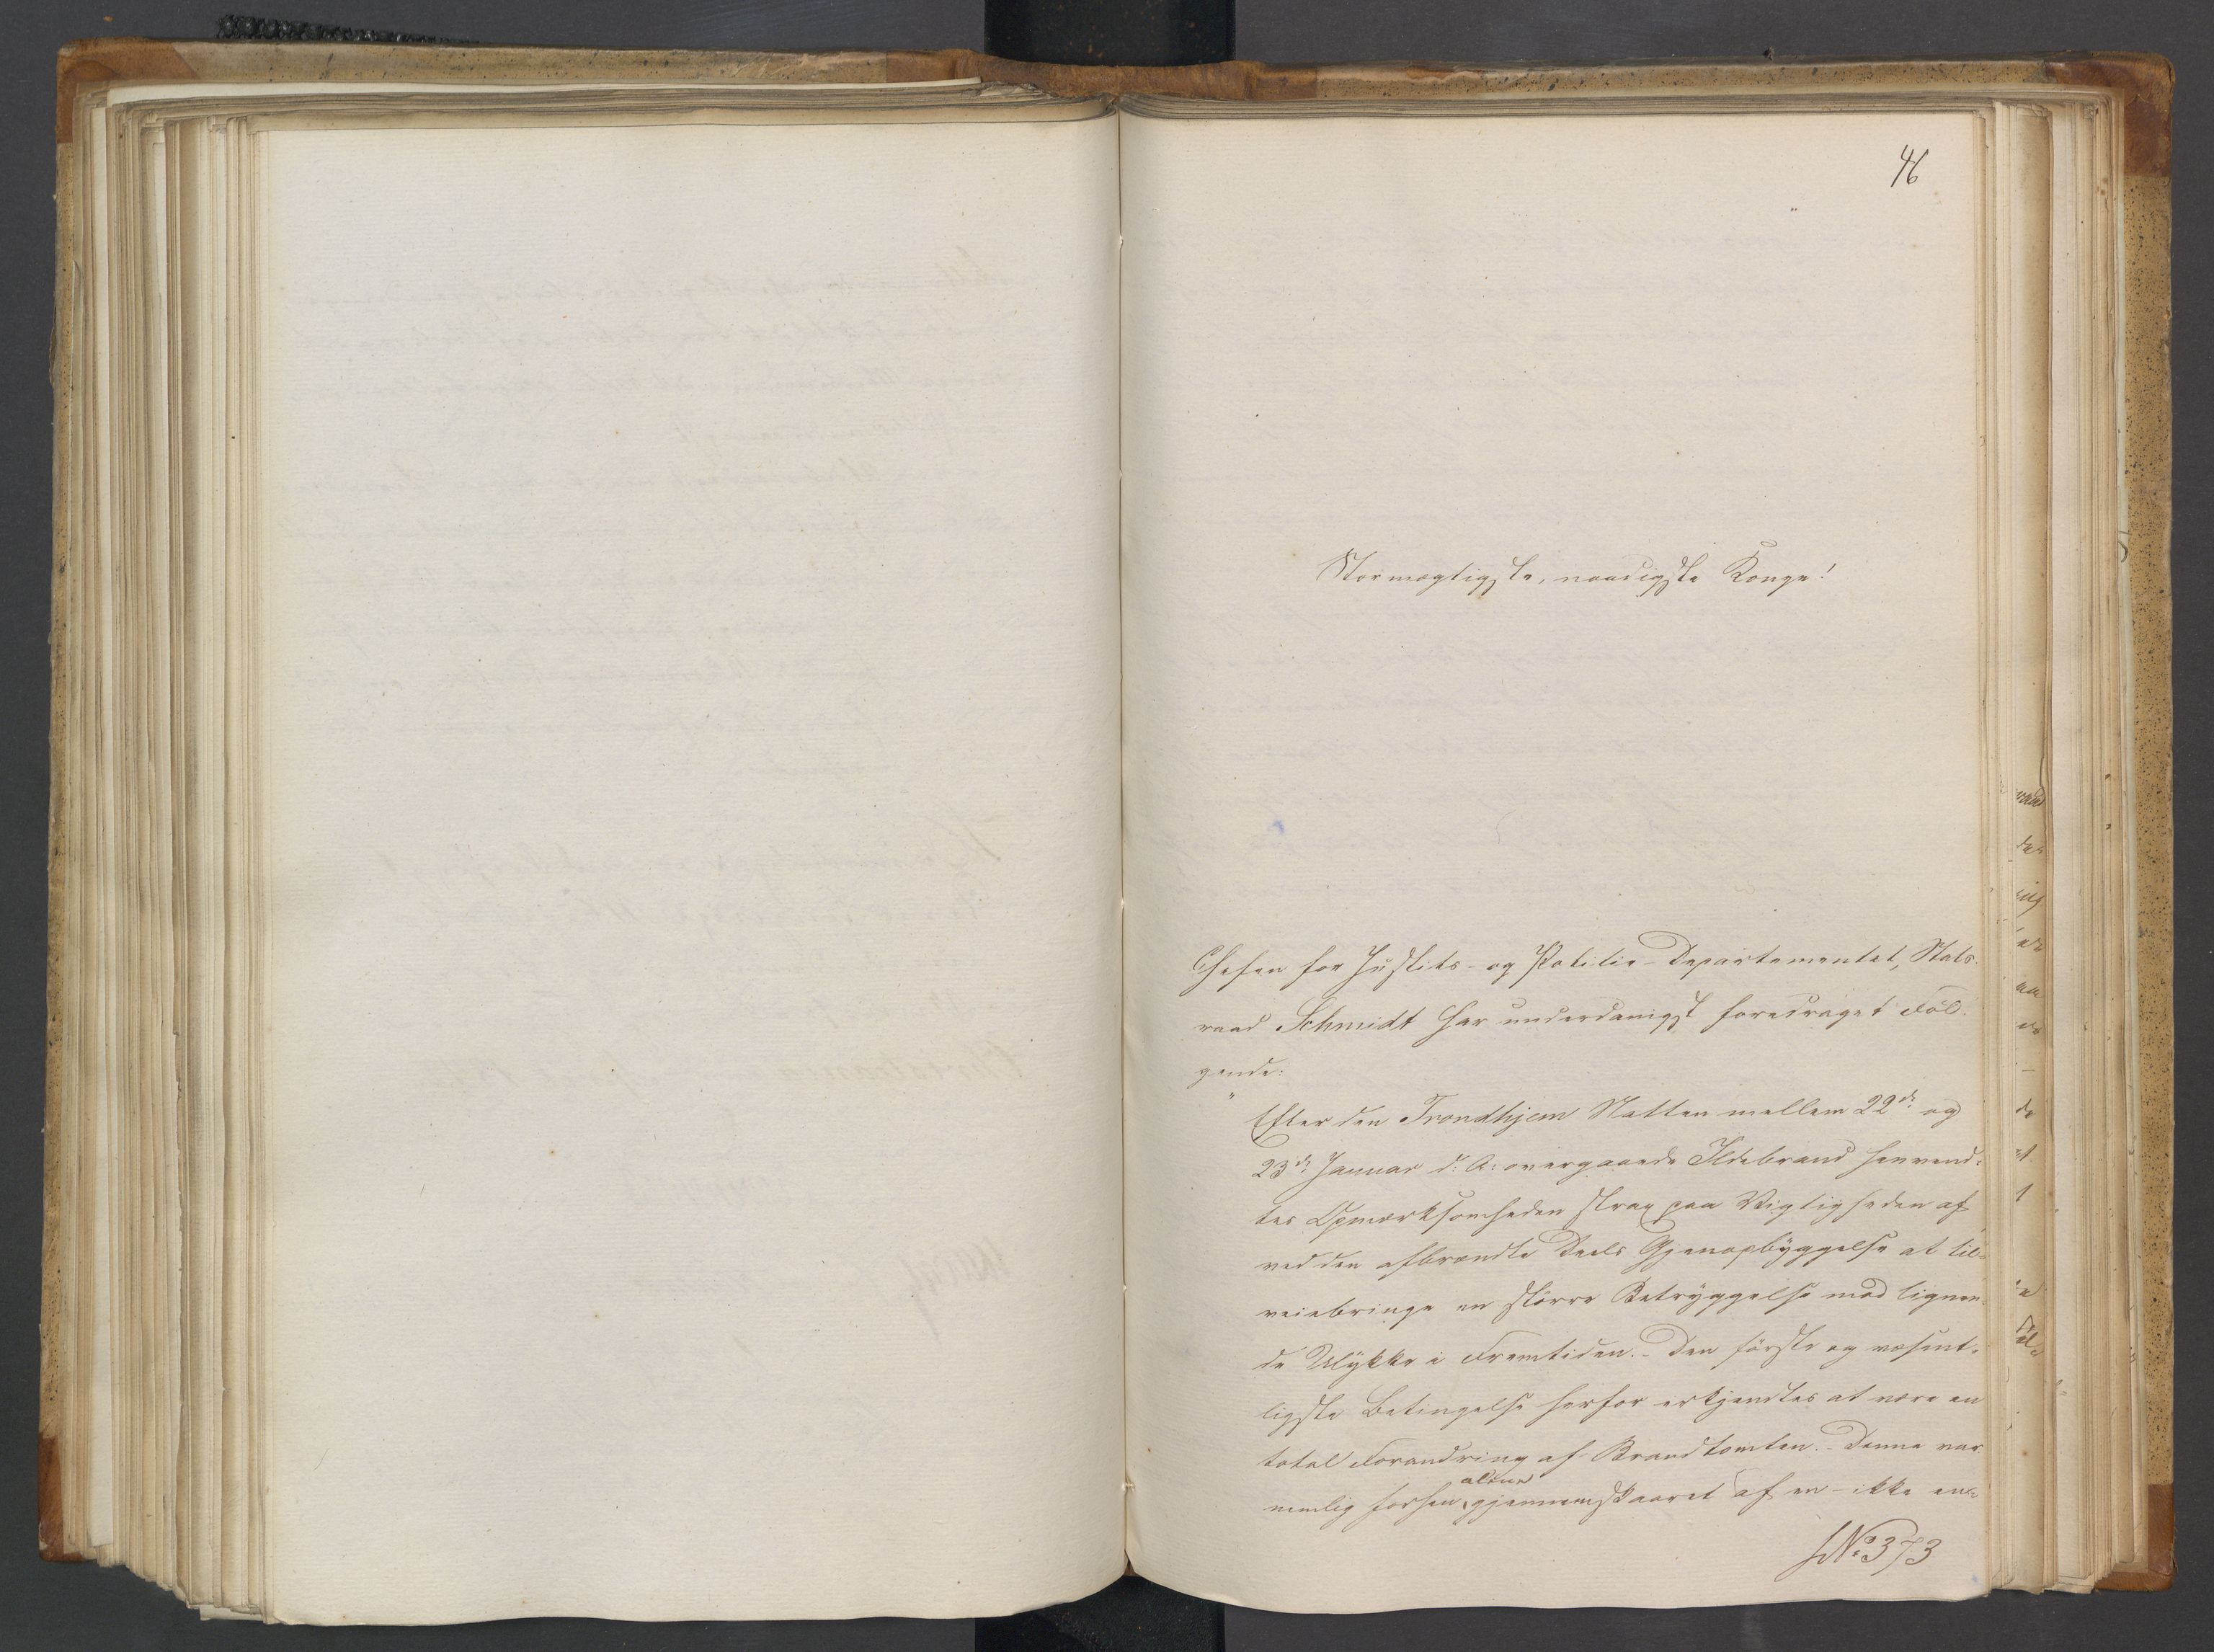 46
Stormægtigste, naadigste Konge!
Chefen for Justits- og Politie-Departementet, Stats-
raad Schmidt har underdanigst foredraget Føl-
gende:
"Efter den Trondhjem Natten mellem 22de og
23de Januar d: A: overgaaede Ildebrand henvend-
tes Opmærksomheden strax paa Vigtigheden af
ved den afbrændte Deels Gjenopbyggelse at til-
veiebringe en større Betryggelse mod lignen-
de Ulykke i Fremtiden. - Den første og væsent-
ligste Betingelse herfor erkjendtes at være en
total Forandring af Brandtomten. - Denne var
nemlig forhen alene gjennemskaaret af en - ikke en-
No 373